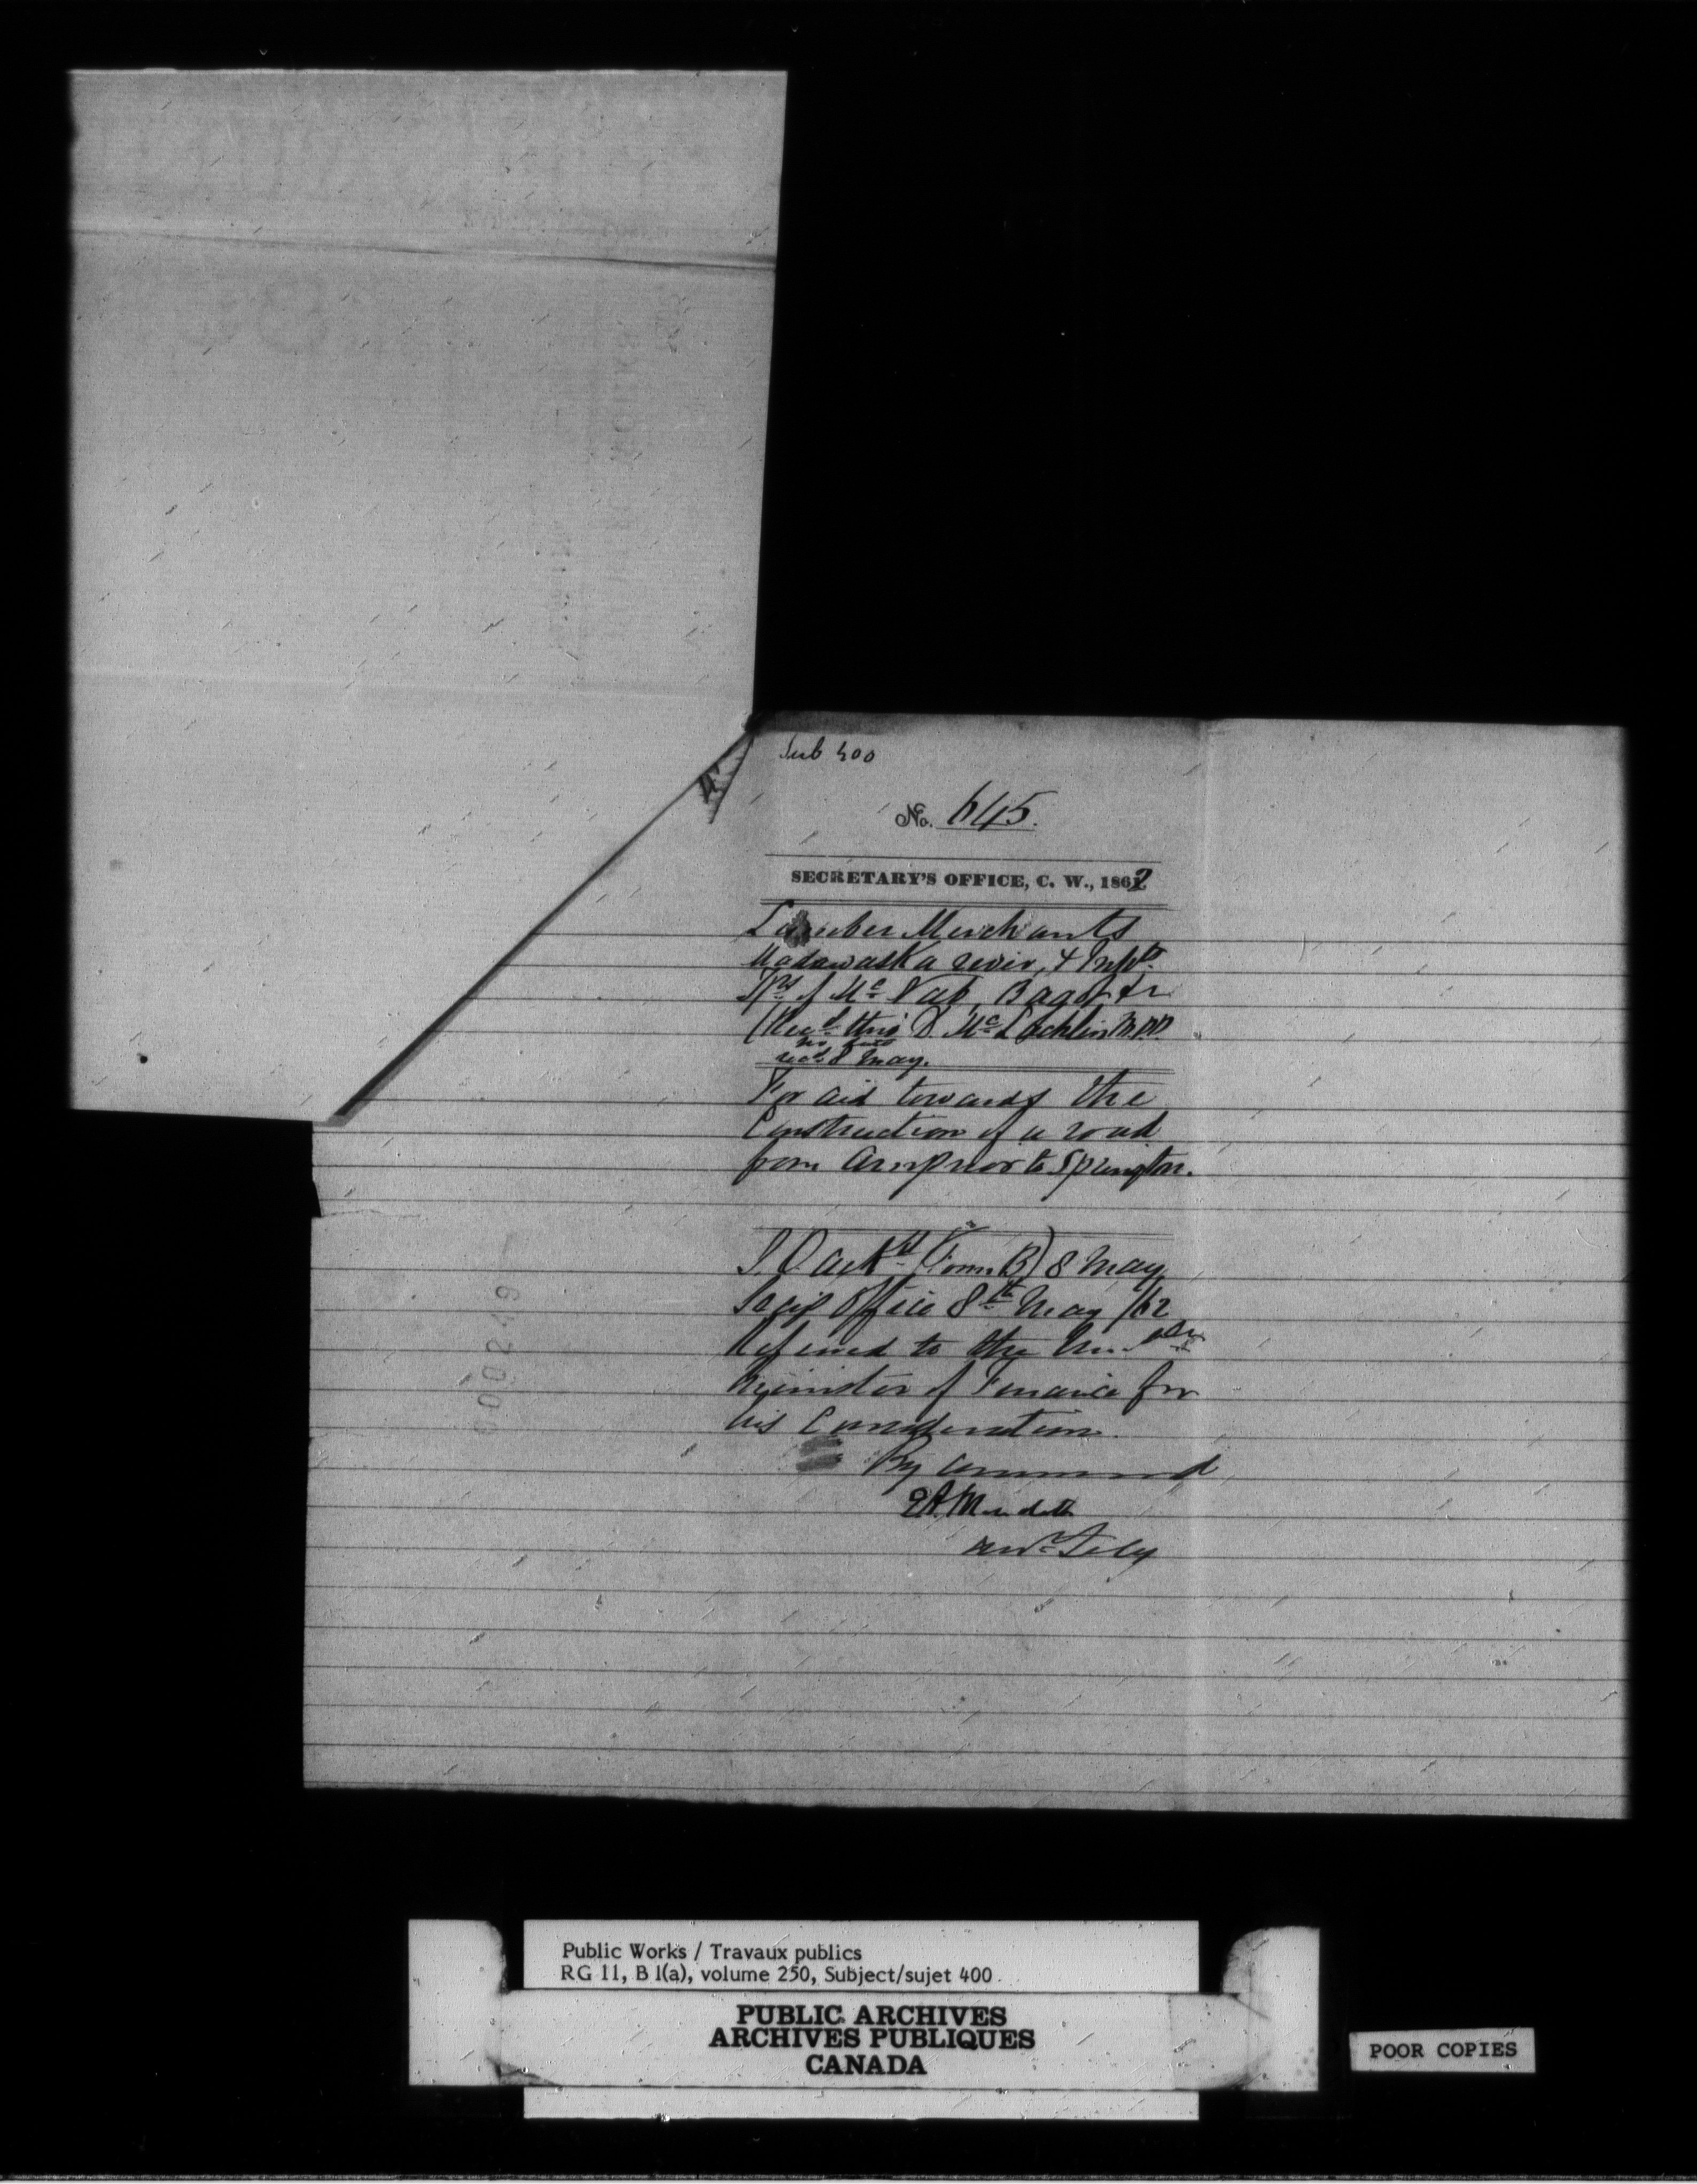 Sub 400
No. 645.
SECRETARY'S OFFICE, C. W., 1862
Lumber Merchants
Madawaska River, & Inhbts
Tps of McNab, Bagot &c
(Recd thro' D. McLachlin M.P.P.
no date
recd 8 May.
For aid towards the
Construction of a road
from Arnprior to Springtown.
Ackd (Form B) 8 May
Secy's Office 8th May /62
Referred to the Honble
Minister of Finance for
his Consideration.
By Command
E A Meredith
Asst Secy
000249
Public Works / Travaux publics
RG 11, B 1(a), volume 250, Subject/sujet 400
PUBLIC ARCHIVES
ARCHIVES PUBLIQUES
CANADA
POOR COPIES